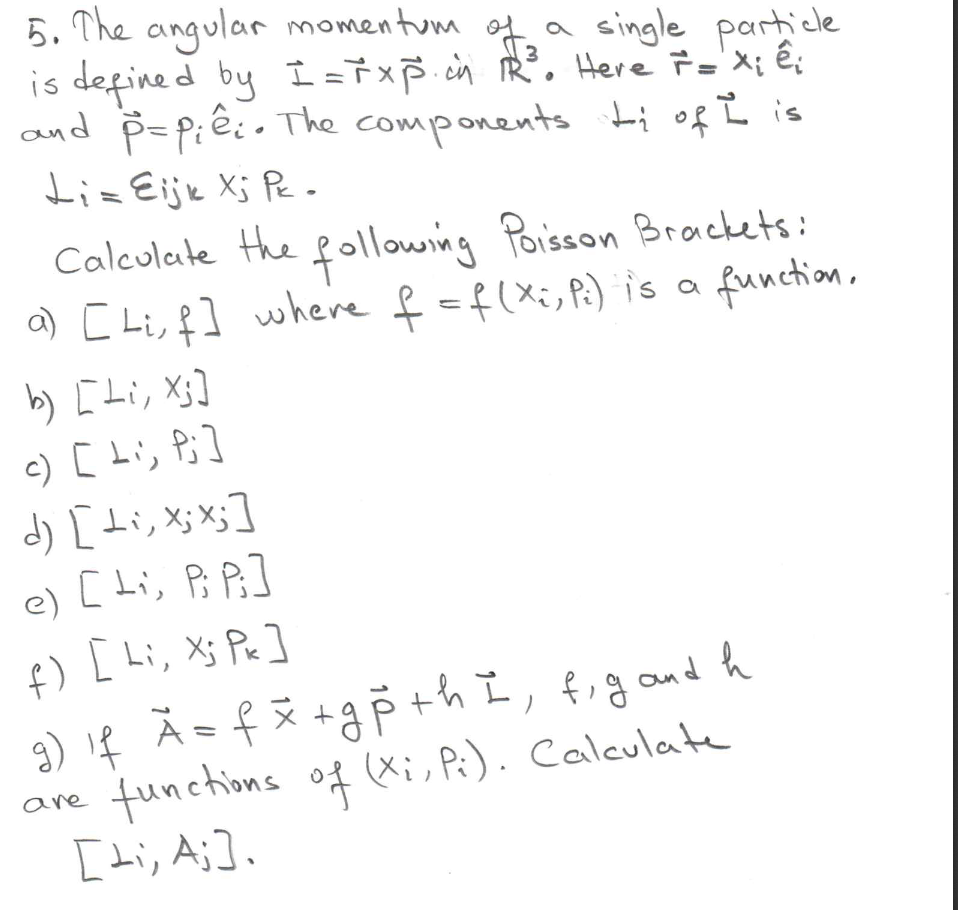 5. The angular momentum of a single particle
is defined by L⃗ = r⃗ x p⃗ in ℝ³. Here r⃗ = xᵢ êᵢ
and p⃗ = pᵢ êᵢ. The components Lᵢ of L⃗ is
Lᵢ = εᵢⱼₖ xⱼ pₖ.
Calculate the following Poisson Brackets:
a) [Lᵢ, f] where f = f(xᵢ, pᵢ) is a function.
b) [Lᵢ, xⱼ]
c) [Lᵢ, pⱼ]
d) [Lᵢ, xⱼ xⱼ]
e) [Lᵢ, pⱼ pⱼ]
f) [Lᵢ, xⱼ pₖ]
g) if A⃗ = f x⃗ + g p⃗ + h L⃗, f, g and h
are functions of (xᵢ, pᵢ). Calculate
[Lᵢ, Aⱼ].